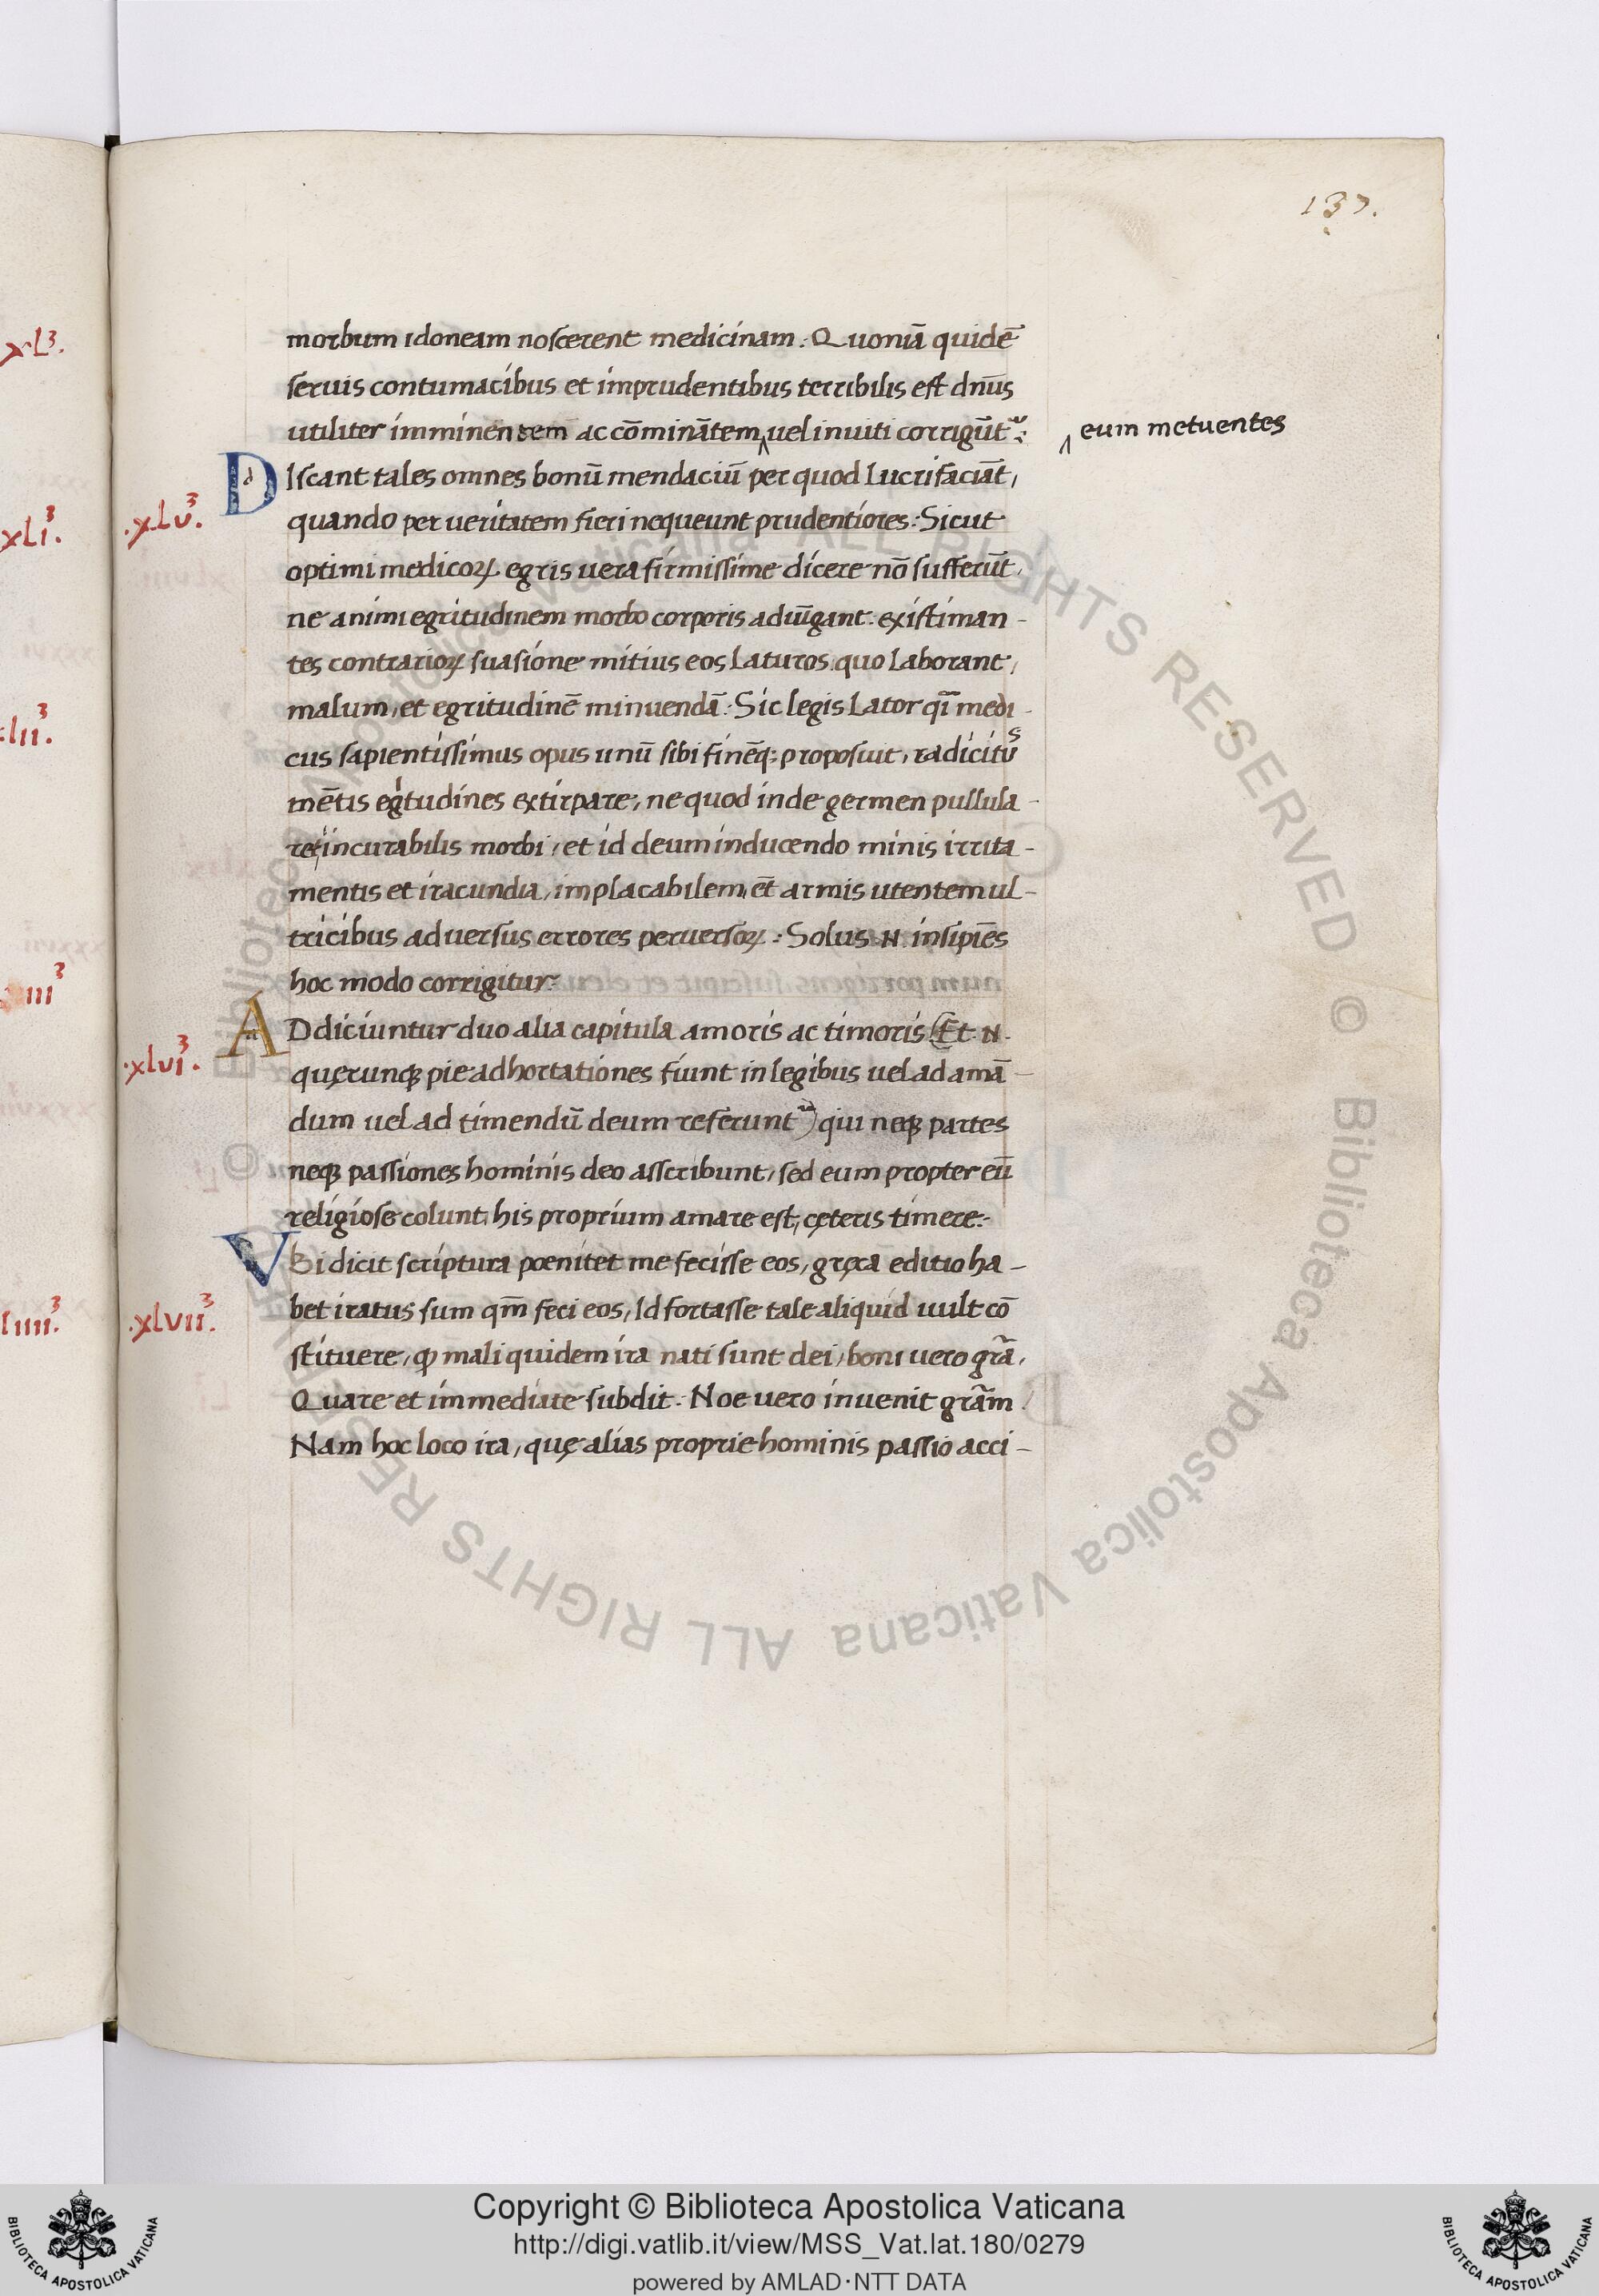 137.
morbum idoneam noscerent medicinam. Quoniā quidē
seruis contumacibus et imprudentibus terribilis est dn̄us
utiliter imminentem ac cōminātem ‸ uel inuiti corrigūt᷑:
‸ eum metuentes
.xlv³.
DIscant tales omnes bonū mendaciū per quod lucrifaciāt,
quando per ueritatem fieri nequeunt prudentiores: Sicut
optimi medicoꝝ egris uera firmissime dicere nō sufferūt,
ne animi egritudinem morbo corporis adiūgant: existiman-
tes contrarioꝝ suasione mitius eos laturos quo laborant,
malum, et egritudinē minuendā: Sic legis lator qī medi-
cus sapientissimus opus unū sibi finēq; proposuit, radicitus
mētis egͥtudines extirpare, ne quod inde germen pullula-
ret incurabilis morbi, et id deum inducendo minis irrita-
mentis et iracundia, implacabilem, et armis utentem ul-
tricibus aduersus errores peruersoꝝ: Solus .N. insipiēs
hoc modo corrigitur:
.xlvi³.
ADdiciuntur duo alia capitula amoris ac timoris (Et .N.
quęcunqꝫ pie adhortationes fiunt in legibus uel ad amā-
dum uel ad timendū deum referunt᷑) qui neqꝫ partes
neqꝫ passiones hominis deo asscribunt, sed eum propter eū
religiose colunt, his proprium amare est, cęteris timere:
.xlvii³.
VBi dicit scriptura pœnitet me fecisse eos, gręca editio ha-
bet iratus sum qm̄ feci eos, Id fortasse tale aliquid uult cō
stituere, ꝙ mali quidem ira nati sunt dei, boni uero grā,
Quare et immediate subdit. Noe uero inuenit grām.
Nam hoc loco ira, quę alias proprie hominis passio acci-
xl³.
xli³.
lii³.
iii³
liiii³.
Copyright © Biblioteca Apostolica Vaticana
http://digi.vatlib.it/view/MSS_Vat.lat.180/0279
powered by AMLAD·NTT DATA
BIBLIOTECA APOSTOLICA VATICANA
BIBLIOTECA APOSTOLICA VATICANA
© Biblioteca Apostolica Vaticana ALL RIGHTS RESERVED
© Biblioteca Apostolica Vaticana ALL RIGHTS RESERVED